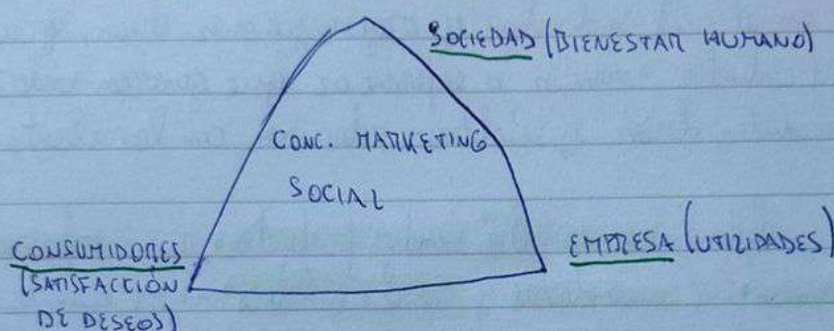 SOCIEDAD (BIENESTAR HUMANO)
CONC. MARKETING
SOCIAL
CONSUMIDORES
(SATISFACCIÓN
DE DESEOS)
EMPRESA (UTILIDADES)